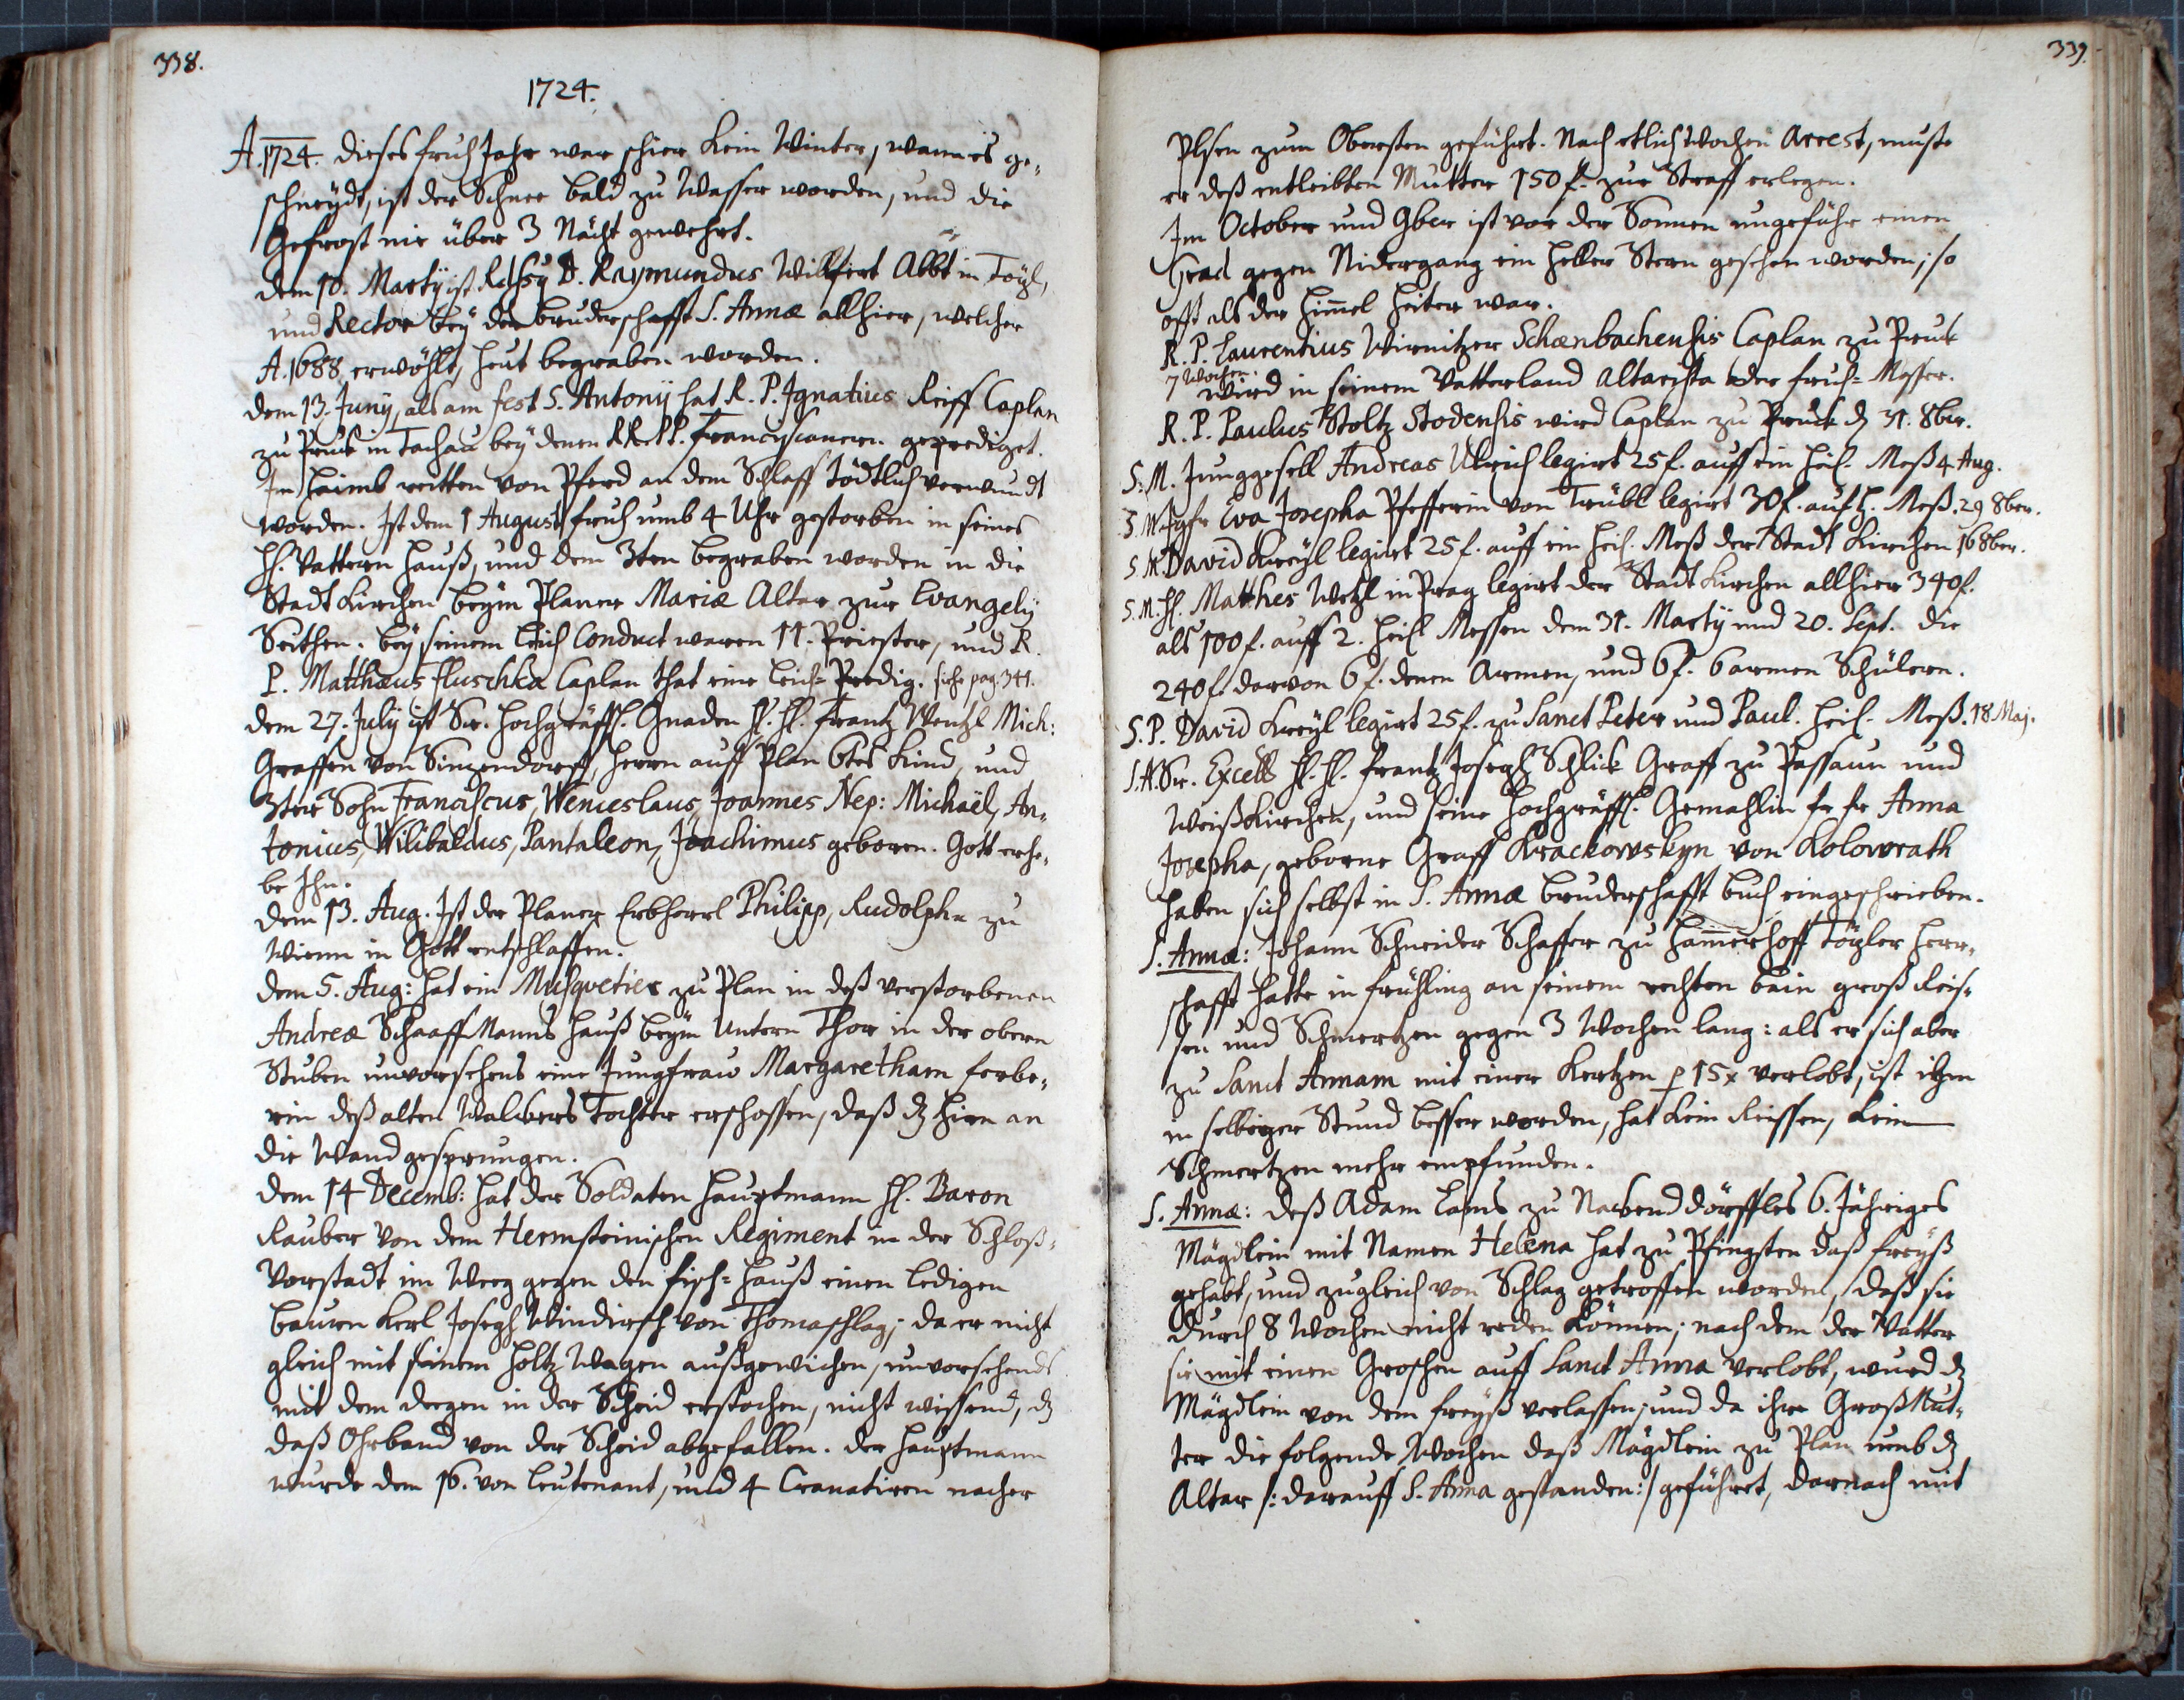 338.
1724.
A. 1724. dieses fruh Jahr war schier kein Winter, wann es ge=
schneydt, ist der Schnee bald zu Wasser worden, und die
Gefrost nie über 3 Nächt gewehrt.
dem 10. Martij ist D. Raymundus Wilfert Abbt in Töpl,
und Rector bey der bruderschafft S. Annæ allhier, welcher
A. 1688 erwöhlt, heut begraben worden.
dem 13. Junÿ, als am fest S. Antonÿ hat R. P. Ignatius Reiff Caplan
zu Pruck in Tachau bey denen RR. PP. Franciscanern geprediget.
Im haimb reitten von Pferd an dem Schlaff tödtlich verwundt
worden. Ist dem 1 August fruh umb 4 Uhr gestorben in seines
H. Vattern hauß, und dem 3ten begraben worden in die
Stadt Kirchen beym Planer Mariæ Altar zur Evangelÿ
Seithen. bey seinem Leich Conduct waren 11. Priester, und R.
P. Matthæus Fluschka Caplan that eine Leich=Predig. siehe pag. 341.
dem 27. July ist Sr. hochgräffl. Gnaden H. H. Frantz Wentzl Mich:
Graffen von Sinzendorff, herrn auff Plan 6tes Kind, und
3ter Sohn Franciscus, Wenceslaus, Joannes Nep: Michaël, An=
tonius, Wilibaldus, Pantaleon, Joachimus geboren. Gott erhe=
be Ihn.
dem 13. Aug. Ist der Planer Erbherrl Philipp, Rudolph zu
Wienn in Gott entschlaffen.
dem 5. Aug: hat ein Musquetier zu Plan in deß verstorbenen
Andreæ Schaaff Manns hauß beym Untern Thor in der obern
Stuben unvorsehens eine Jungfrau Margaretham ferbe=
rin deß alten Walbers Tochter erschossen, daß dz hirn an
die Wand gesprungen.
dem 14 Decemb: hat der Soldaten hauptmann H. Baron
Rauber von dem Hermsteinischen Regiment in der Schloß=
Vorstadt im Weeg gegen den fisch=hauß einen ledigen
bauern Kerl Joseph Windirsch von Thomaschlag; da er nicht
gleich mit seinem holtz Wagen außgewichen, unvorsehends
mit dem degen in der Scheid erstochen, nicht wissend, dz
daß Ohrband von der Scheid abgefallen. der hauptmann
wurde dem 16. von Leutenant, und 4 Cranatiren nacher
339.
Plsen zum Obersten geführt. Nach etlich Wochen Arrest, muste
er deß entleibten Mutter 150 f. zur Straff erlegen.
Im October und 9ber ist vor der Sonnen ungefähr einen
Grad gegen Nidergang ein heller Stern gesehen worden; so
offt als der himmel heiter war.
R. P. Laurentius Wirnitzer Schœnbachensis Caplan zu Pruck
7 Wochen.
wird in seinem Vatterland Altarista oder fruh=Messer.
R. P. Paulus Stoltz Stodensis wird Caplan zu Pruck dz 31. 8ber.
S. M. Junggesell Andreas Ulrich legirt 25 f. auff ein heil. Meß 4 Aug.
S. M. Jgfr Eva Josepha Pfefferin von Trübl legirt 30 f. auf h. Meß. 29 8ber.
S. M. David Kreyl legirt 25 f. auff ein heil. Meß der Stadt Kirchen 16 8ber.
S. M. H. Matthes Wetzl in Prag legirt der Stadt Kirchen allhier 340 f.
als 100 f. auff 2. heil. Messen dem 31. Martÿ und 20. Sept. die
240 f. darvon 6 f. denen Armen, und 6 f. 6 armen Schülern.
S. P. David Kreyl legirt 25 f. zu Sanct Peter und Paul. heil. Meß. 18 Maj.
S. A. Sr. Excell H. H. Frantz Joseph Schlick Graff zu Passaun und
Weißkirchen, und seine hochgräffl. Gemahlin fr fr Anna
Josepha, geborne Graff Krackowskyn von Kolowrath
haben sich selbst in S. Annæ bruderschafft buch eingeschrieben.
S. Annæ: Johann Schneider Schaffer zu hammerhoff Töpler herr=
schafft hatte in frühling an seinem rechten bain groß Reis=
sen und Schmertzen gegen 3 Wochen lang: als er sich aber
zu Sanct Annam mit einer Kertzen p 15 x verlobt, ist ihm
in selbiger Stund besser worden, hat kein Reissen, kein
Schmertzen mehr empfunden.
S. Annæ: deß Adam Lams zu Nackend dörffles 6. Jähriges
Mägdlein mit Namen Helena hat zu Pfingsten daß freyß
gehabt, und zugleich von Schlag getroffen worden, daß sie
durch 8 Wochen nicht reden können; nach dem der Vatter
sie mit einen Groschen auff Sanct Anna verlobt, wurd dz
Mägdlein von dem freyß verlassen; und da ihre Groß Mut=
ter die folgende Wochen daß Mägdlein zu Plan umb dz
Altar /: darauff S. Anna gestanden :/ geführet, darnach mit